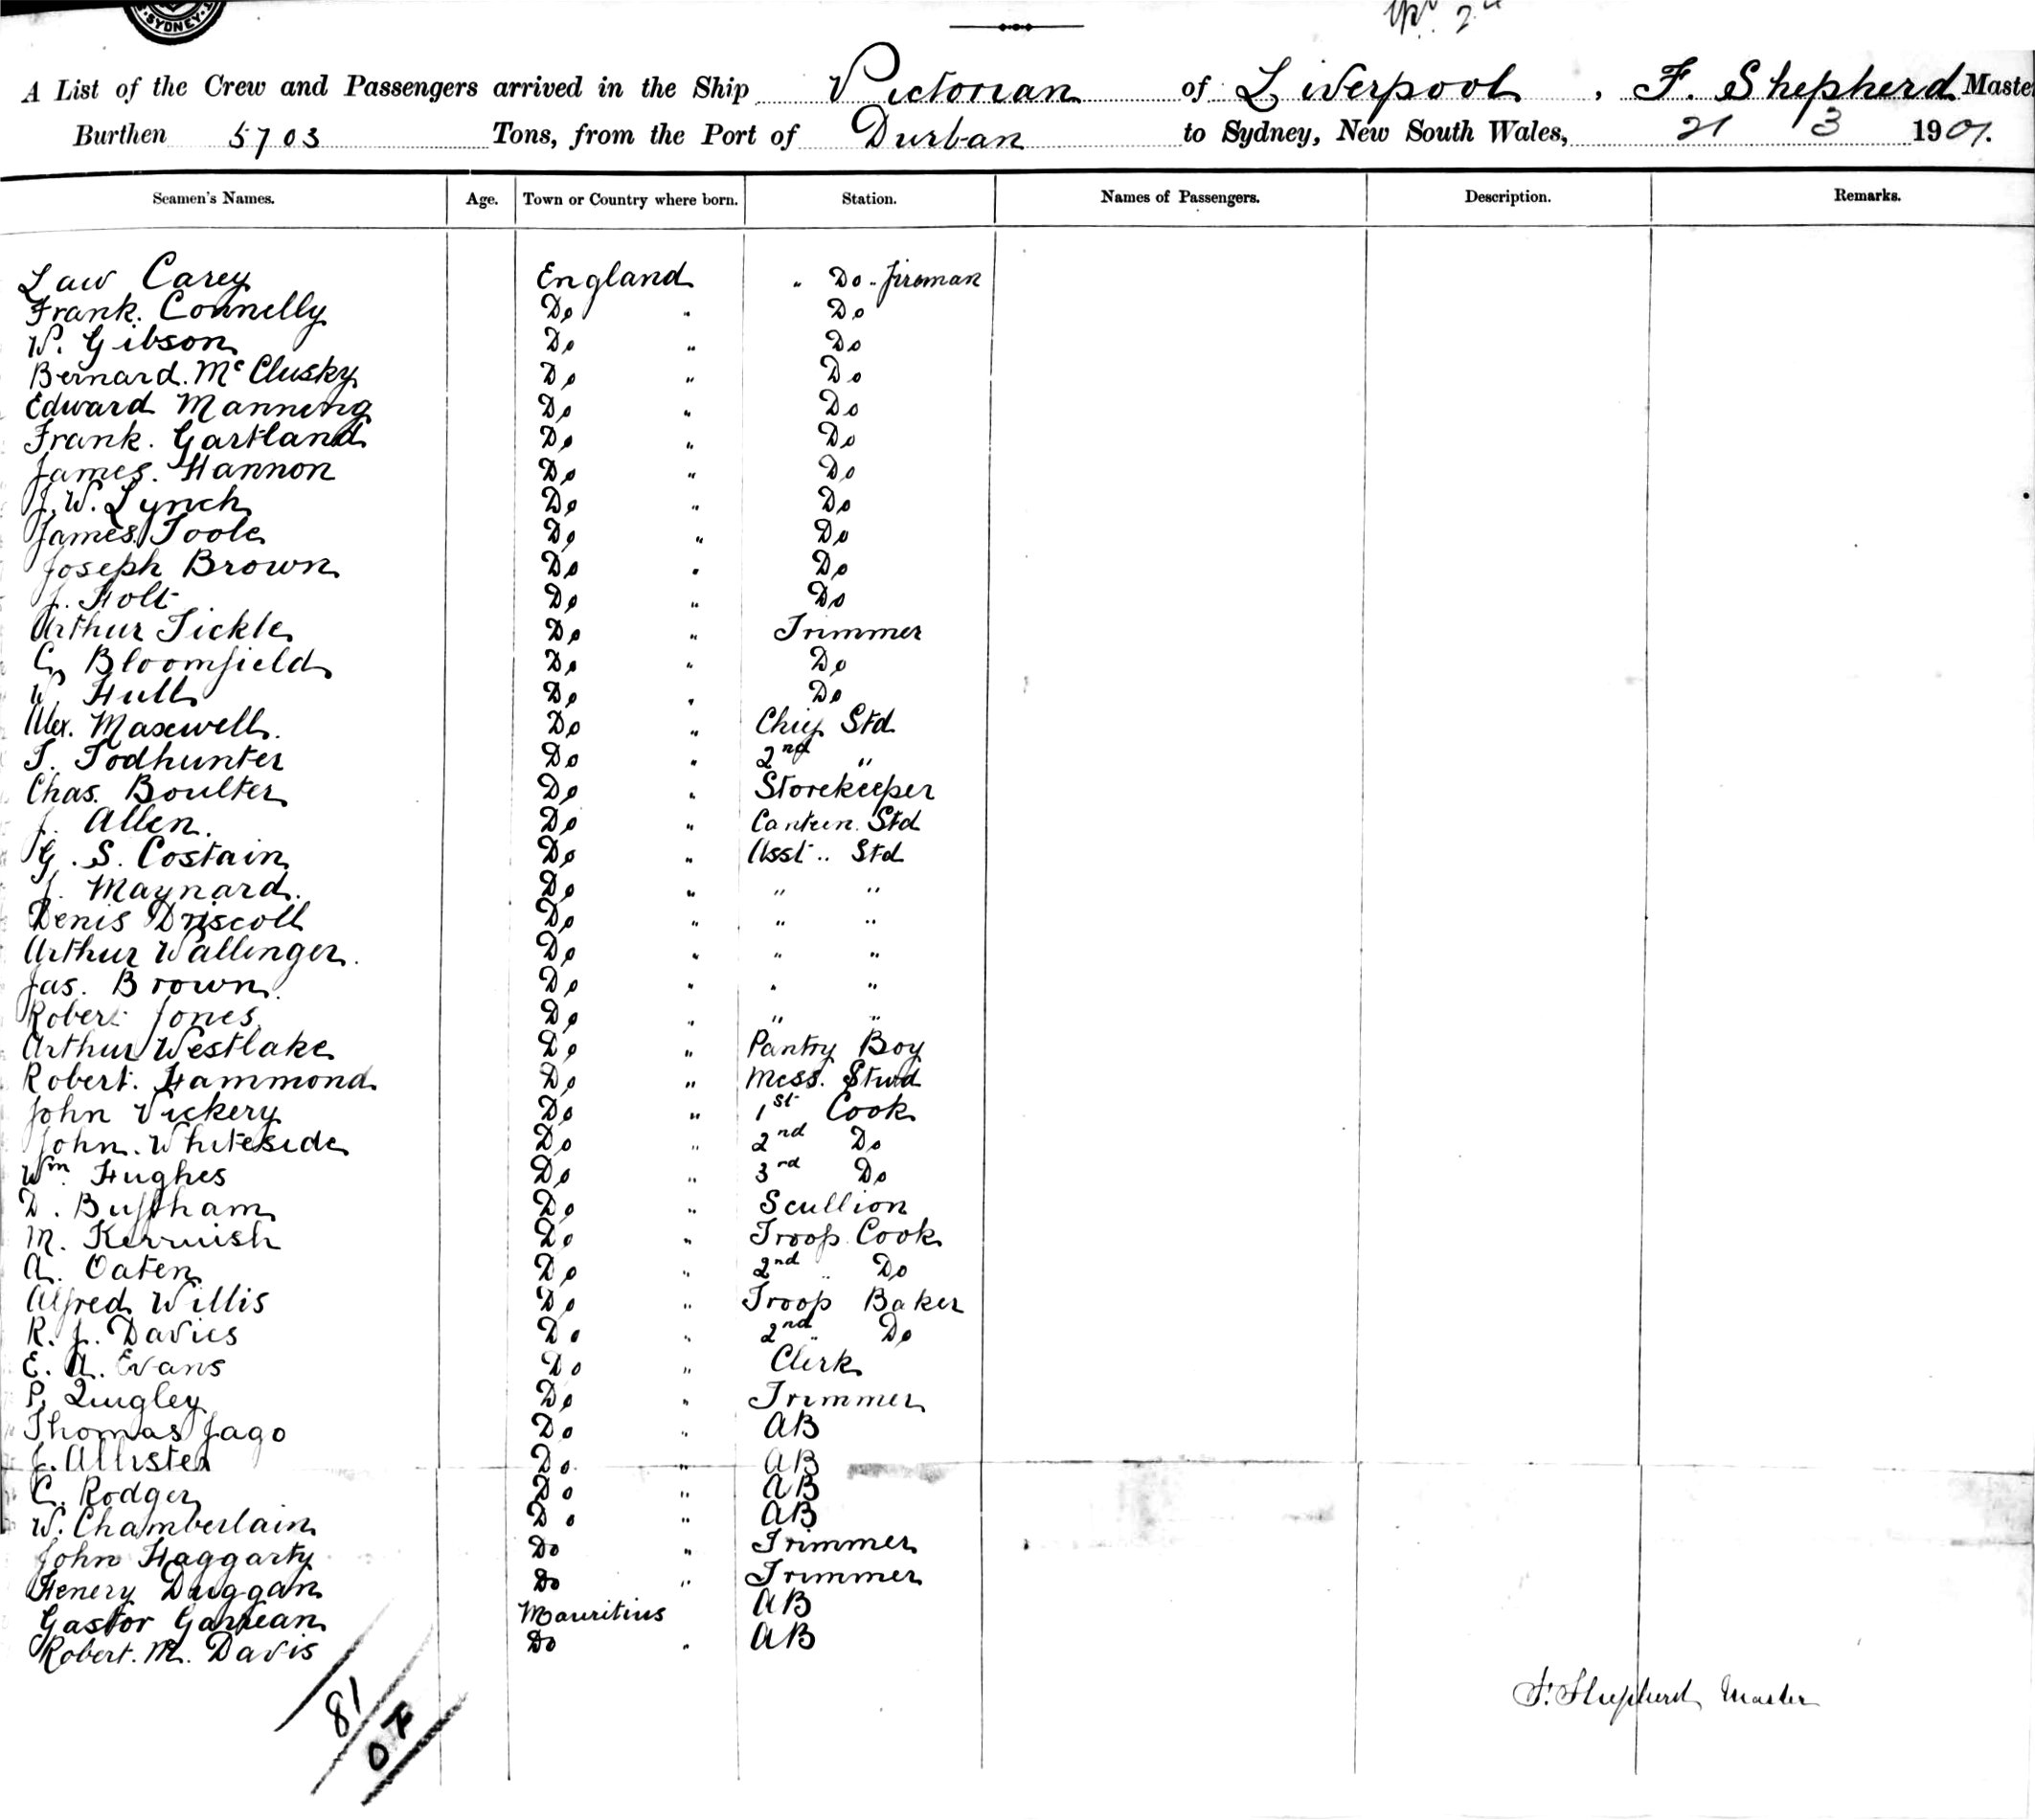 SYDNEY
A List of the Crew and Passengers arrived in the Ship Victorian of Liverpool, F. Shepherd Maste
Burthen 5703 Tons, from the Port of Durban to Sydney, New South Wales, 21 3 1901.
Seamen's Names. Age. Town or Country where born. Station. Names of Passengers. Description. Remarks.
Law Carey England " Do - fireman
Frank. Connelly Do " Do
W. Gibson Do " Do
Bernard. McClusky Do " Do
Edward Manning Do " Do
Frank. Gartland Do " Do
James. Hannon Do " Do
J. W. Lynch Do " Do
James Toole Do " Do
Joseph Brown Do " Do
J. Holt Do " Do
Arthur Tickle Do " Trimmer
C. Bloomfield Do " Do
W Hull Do " Do
Alex. Maxwell. Do " Chief Std
T. Todhunter Do " 2nd "
Chas. Boulter Do " Storekeeper
J. Allen. Do " Canteen. Std
G. S. Costain Do " Asst.. Std
J. Maynard. Do " " "
Denis Driscoll Do " " "
Arthur Wallinger. Do " " "
Jas. Brown. Do " " "
Robert Jones Do " " "
Arthur Westlake Do " Pantry Boy
Robert. Hammond Do " Mess. Stwd
John Vickery Do " 1st Cook
John. Whiteside Do " 2nd Do
Wm. Hughes Do " 3rd Do
D. Do " Scullion
M. Kerruish Do " Troop. Cook
A. Oaten Do " 2nd " Do
Alfred Willis Do " Troop Baker
R. J. Davies Do " 2nd " Do
E. A. Evans Do " Clerk
P. Quigley Do " Trimmer
Thomas Jago Do " AB
J. Allister Do " AB
C. Rodger Do " AB
W. Chamberlain Do " AB
John Haggarty Do " Trimmer
Henery Duggan Do " Trimmer
Gastor Mauritius AB
Robert. M. Davis Do " AB
F. Shepherd Master
81